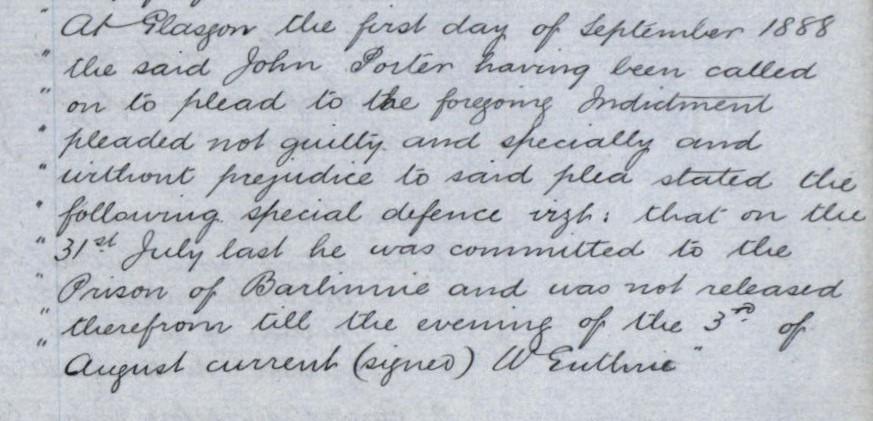 " At Glasgow the first day of September 1888
" the said John Porter having been called
" on to plead to the foregoing Indictment
" pleaded not guilty and specially and
" without prejudice to said plea stated the
" following special defence vizt: that on the
" 31st July last he was committed to the
" Prison of Barlinnie and was not released
" therefrom till the evening of the 3rd of
" August current (signed) W Guthrie"